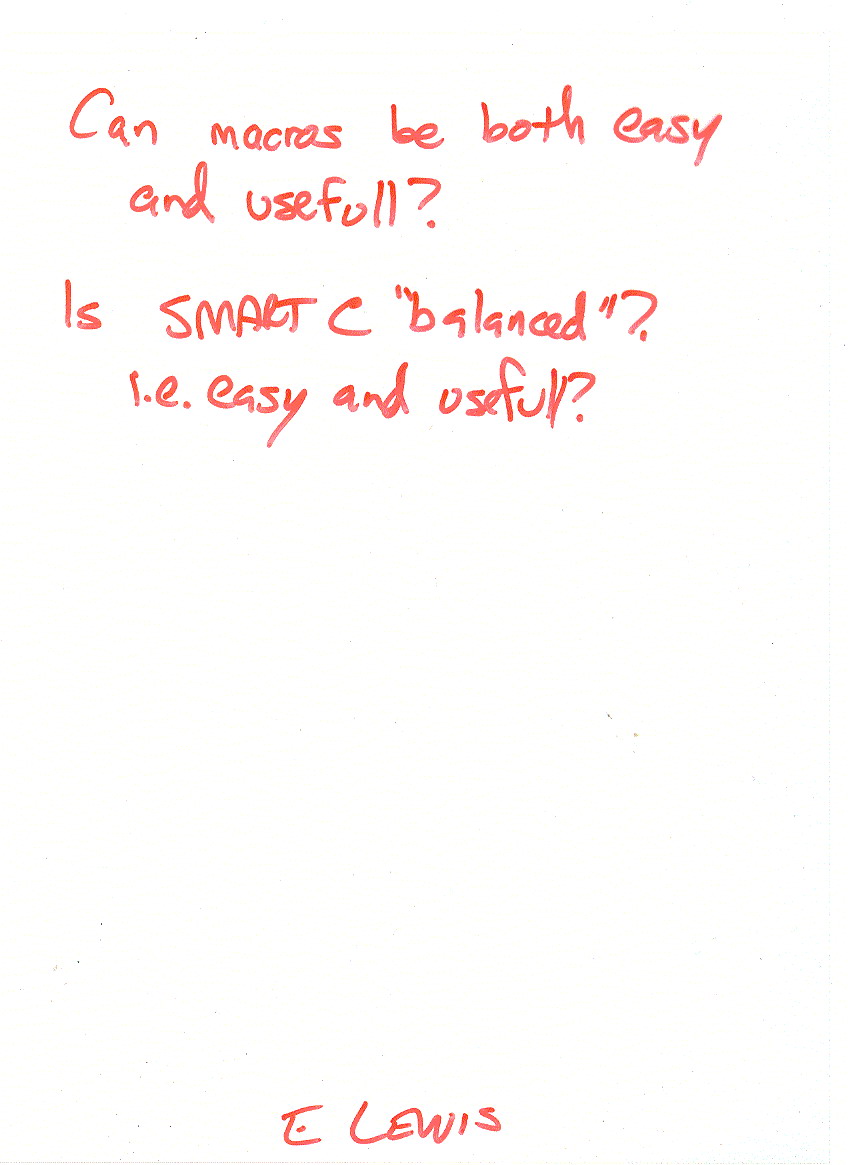 Can macros be both easy
and usefull?
Is SMART C "balanced"?
i.e. easy and usefull?
E LEWIS